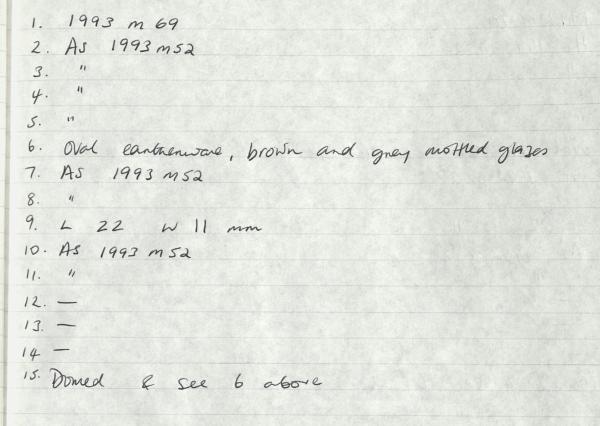 1. 1993 m 69
2. As 1993 m52
3. "
4. "
5. "
6. Oval earthenware, brown and grey mottled glazes
7. As 1993 m52
8. "
9. L 22 W 11 mm
10. As 1993 m52
11. "
12. —
13. —
14 —
15. Domed & see 6 above